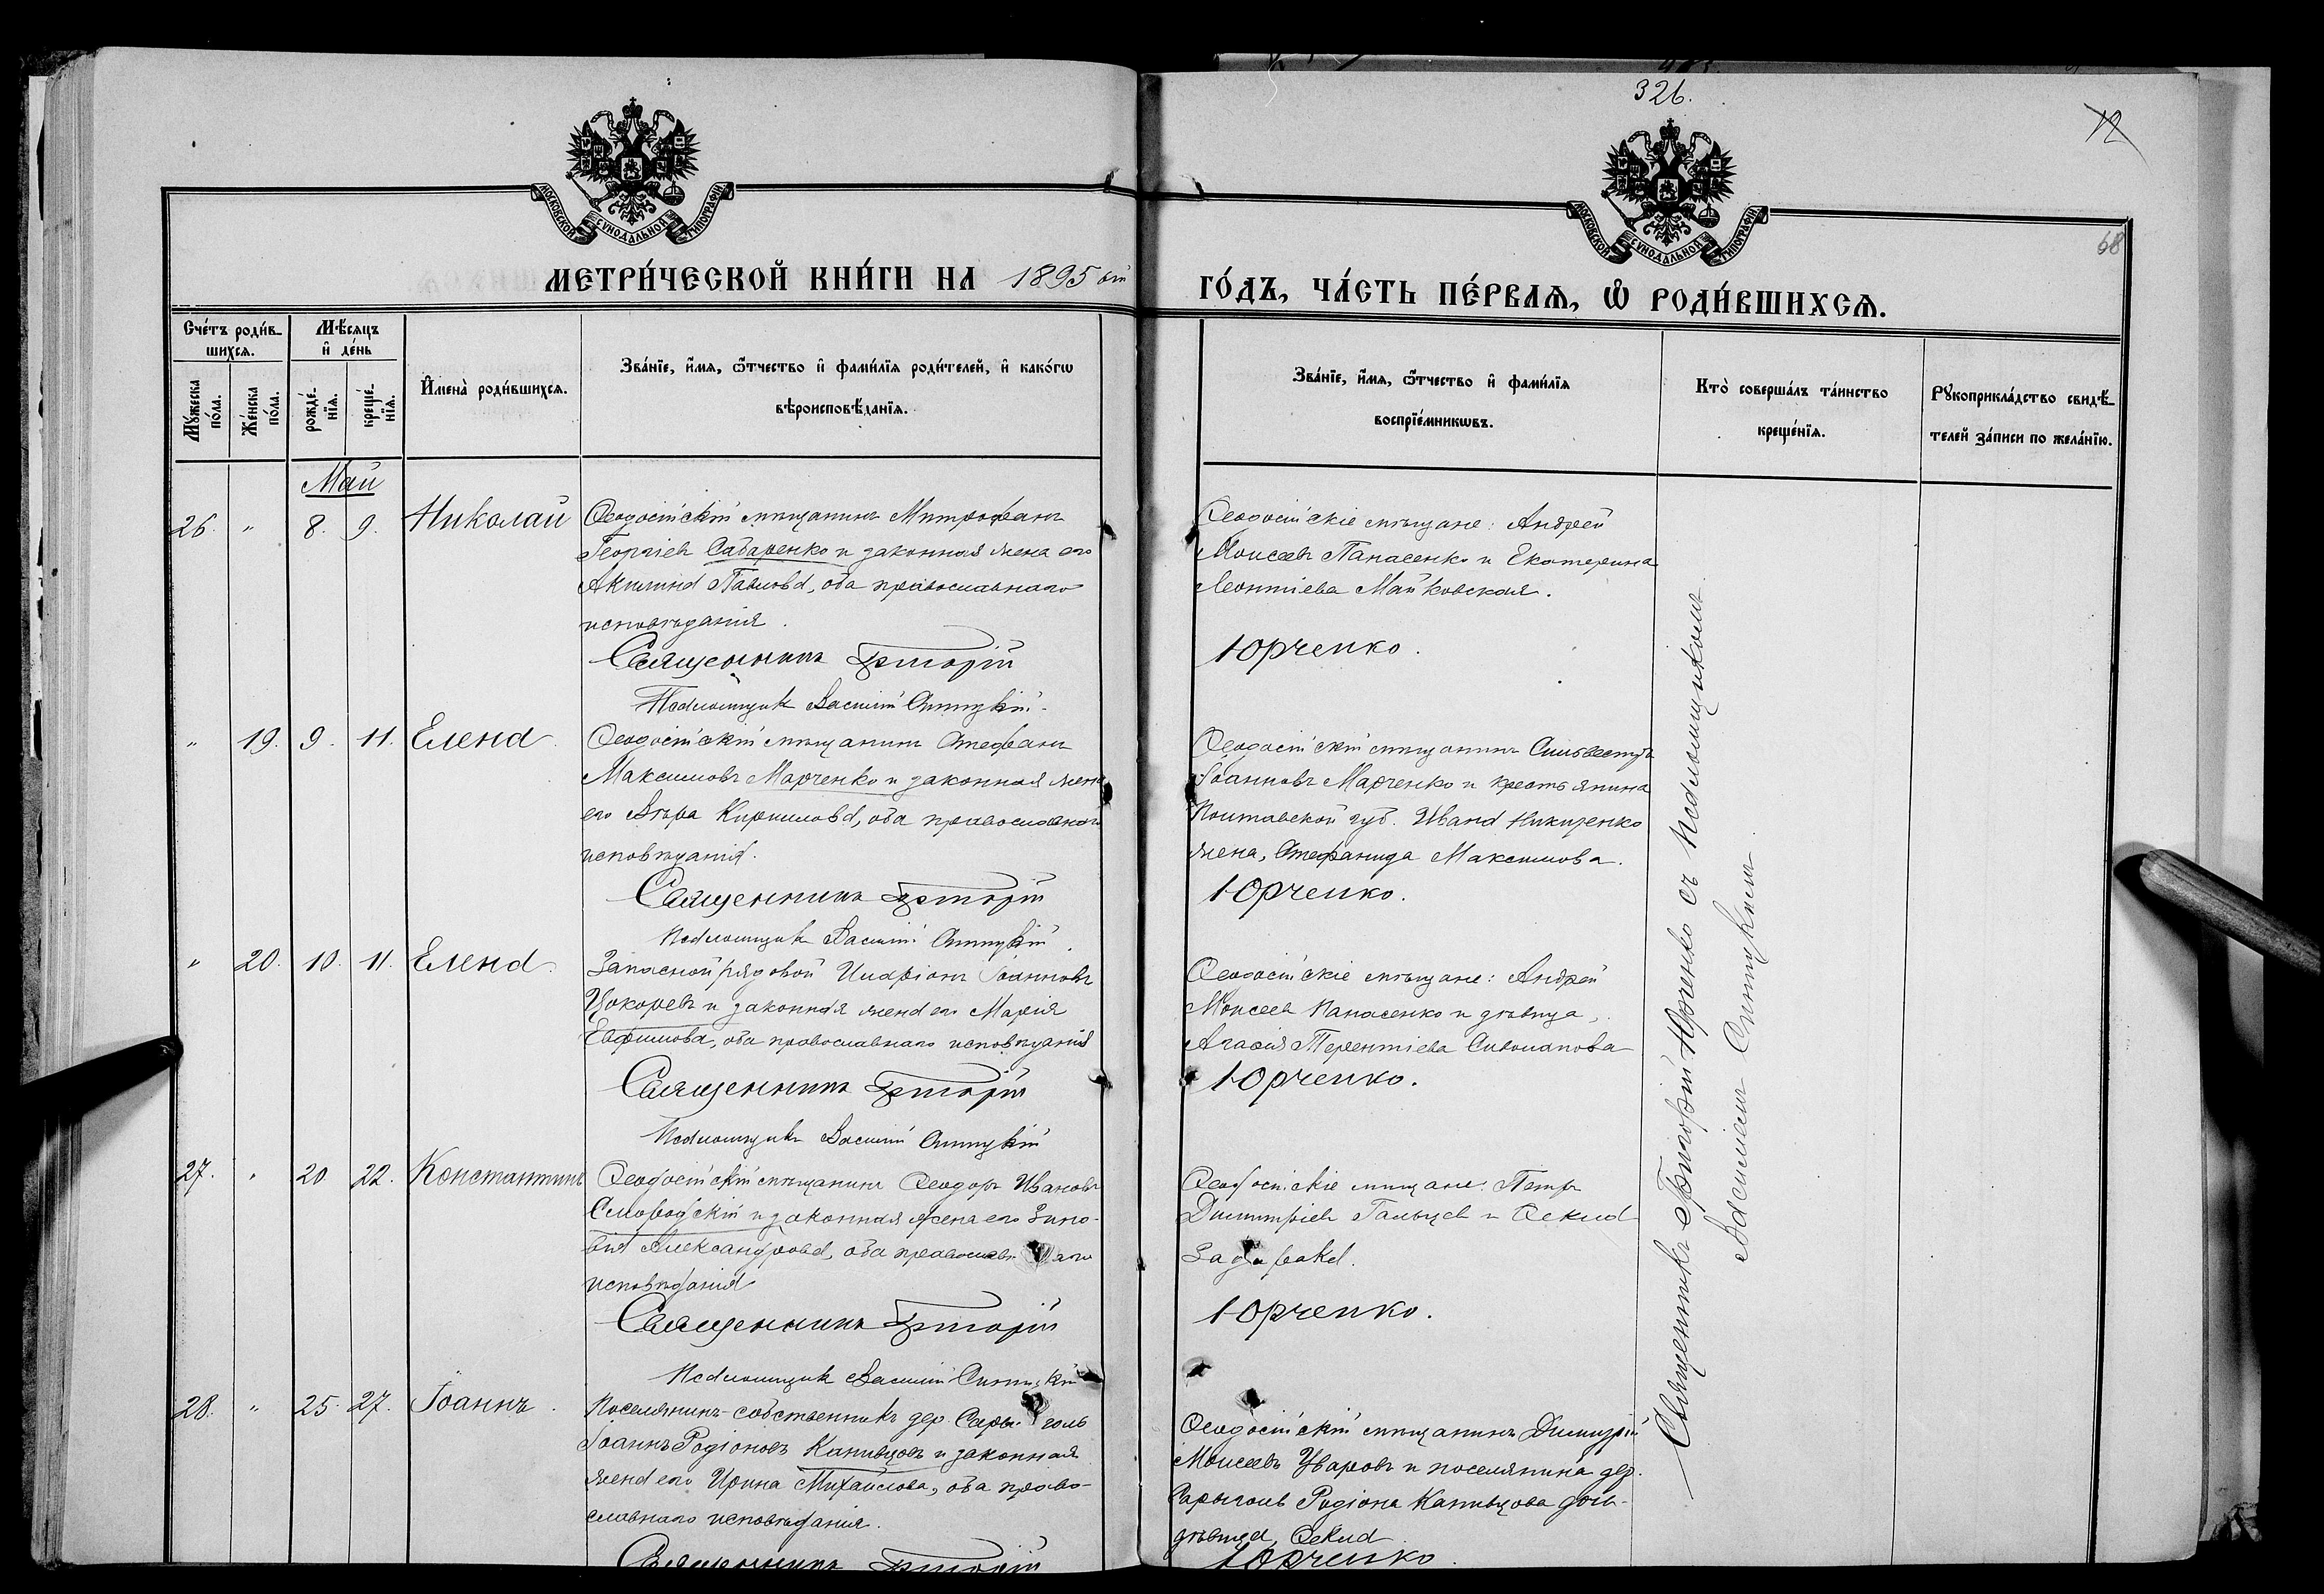 326.
12
68
МОСКОВСКОЙ СѴНОДАЛЬНОЙ ТИПОГРАФІИ
МОСКОВСКОЙ СѴНОДАЛЬНОЙ ТИПОГРАФІИ
МЕТРИ́ЧЕСКОЙ КНИ́ГИ НА 1895 ой
ГО́ДЪ, ЧА́СТЬ ПЕ́РВАѦ, Ѽ РОДИ́ВШИХСѦ.
Сче́тъ роди́в-
шихсѧ.
Мѣ́сяцъ
и҆ де́нь
Мꙋ́жеска по́ла.
Же́нска по́ла.
рожде́-
нїѧ.
креще́-
нїѧ.
И҆мена̀ роди́вшихсѧ.
Зва́нїе, и҆́мѧ, ѻ҆́тчество и҆ фами́лїѧ роди́телей, и҆ како́гѡ
вѣроисповѣ́данїѧ.
Зва́нїе, и҆́мѧ, ѻ҆́тчество и҆ фами́лїѧ
воспрїе́мникѡвъ.
Кто̀ соверша́лъ та́инство
креще́нїѧ.
Рꙋкоприкла́дство свидѣ́-
телей за́писи по жела́нїю.
Май
26. " 8. 9. Николай
Ѳеодосійскій мѣщанинъ Митрофанъ
Георгіевъ Сабаренко и законная жена его
Акилина Павлова, оба православнаго
исповѣданія.
Священникъ Григорій
Псаломщикъ Василій Ситецкій.
Ѳеодосійскіе мѣщане: Андрей
Моисеевъ Панасенко и Екатерина
Леонтіева Майковская.
Юрченко.
" 19. 9. 11. Елена
Ѳеодосійскій мѣщанинъ Стефанъ
Максимовъ Марченко и законная жена
его Вѣра Кирилова, оба православнаго
исповѣданія.
Священникъ Григорій
Псаломщикъ Василій
Ѳеодосійскій мѣщанинъ Сильвестръ
Іоанновъ Марченко и крестьянина
Полтавской губ. Ивана Никиренко
жена, Стефанида Максимова.
Юрченко.
" 20. 10. 11. Елена.
Запасной рядовой Иларіонъ Іоанновъ
Цокоревъ и законная жена его Марія
Евфимова, оба православнаго исповѣданія
Священникъ Григорій
Псаломщикъ Василій
Ѳеодосійскіе мѣщане: Андрей
Моисеевъ Панасенко и дѣвица,
Агафія Терентіева Сиволапова
Юрченко.
27. " 20 22. Константинъ
Ѳеодосійскій мѣщанинъ Ѳеодоръ Ивановъ
Смородскій и законная жена его Зино-
вія Александрова, оба православнаго
исповѣданія
Священникъ Григорій
Псаломщикъ Василій
Ѳеодосійскіе мѣщане: Петръ
Димитріевъ Гальцевъ и Ѳекла
Юрченко.
28. " 25. 27. Іоаннъ.
Поселянинъ-собственникъ дер. Сары-голь
Іоаннъ Родіоновъ Канивцовъ и законная
жена его Ирина Михайлова, оба право-
славнаго исповѣданія.
Священникъ Григорій
Ѳеодосійскій мѣщанинъ Димитрій
Моисеевъ Уваровъ и поселянина дер.
Сарыголь Родіона Канивцова дочь-
дѣвица, Ѳекла
Юрченко.
Священникъ Григорій Юрченко съ псаломщикомъ
Василіемъ